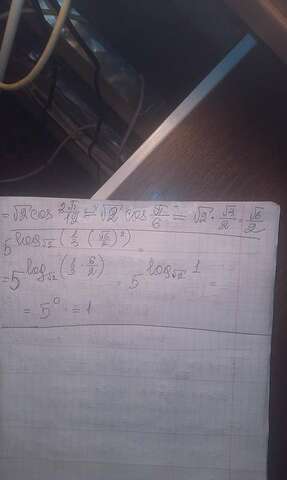 = √2 cos 2π/12 = √2 cos π/6 = √2 · √3/2 = √6/2
5^log_√2 (1/3 · (√6/2)²) =
= 5^log_√2 (1/3 · 6/2) = 5^log_√2 1 =
= 5⁰ = 1